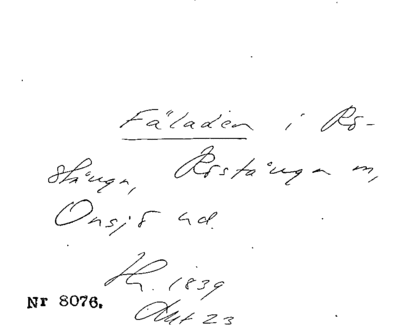 Fäladen i Rö-
stånga, Röstånga m,
Onsjö hd.
Hr. 1839
Akt 23
Nr 8076.